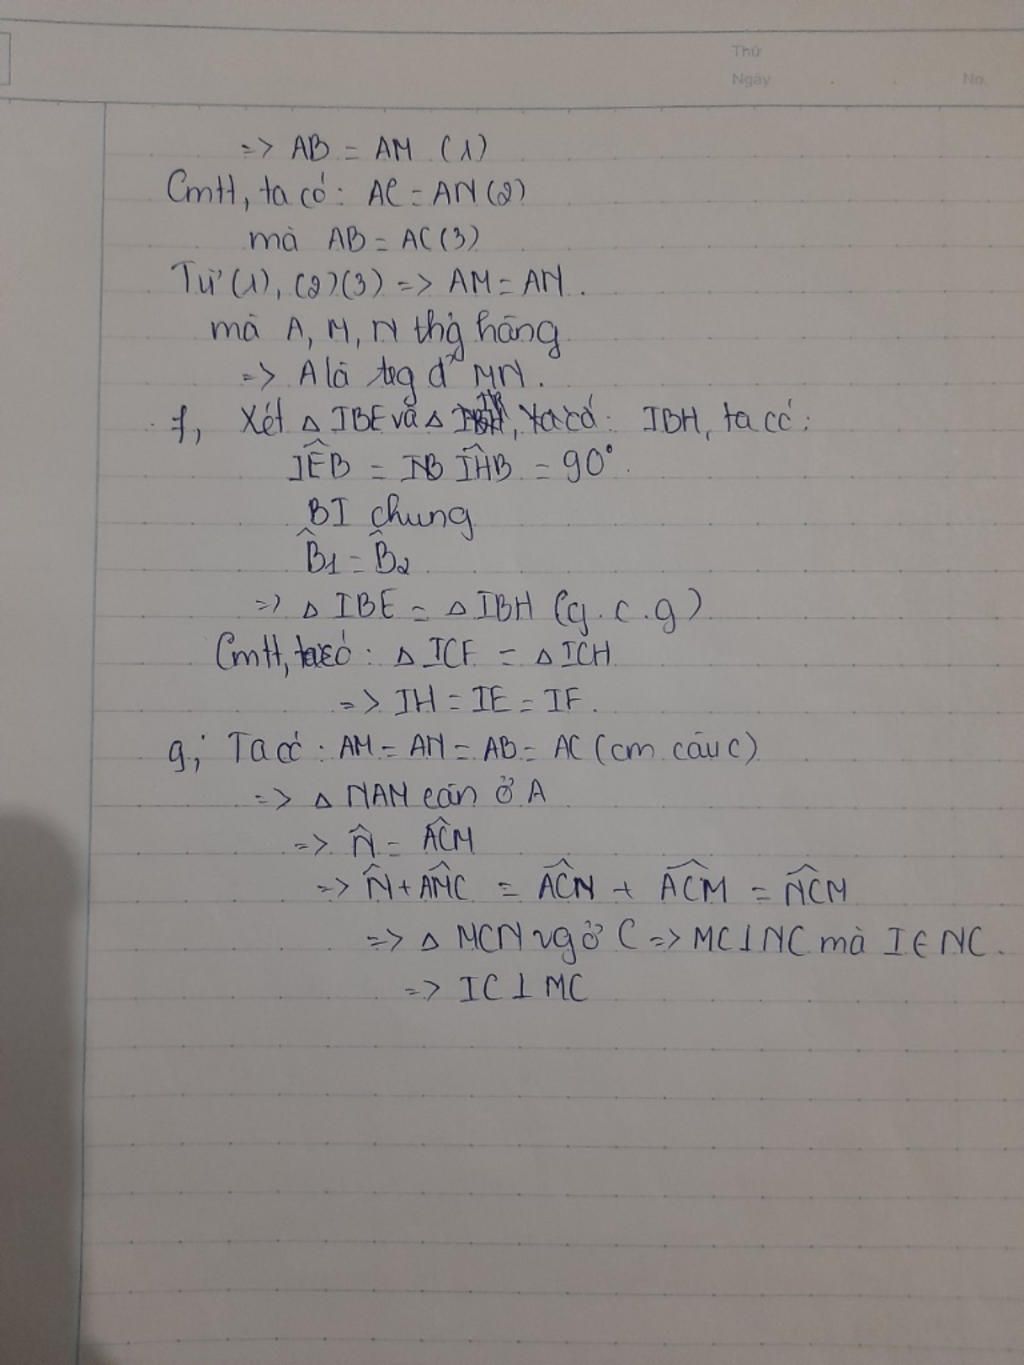 Thứ
Ngày . . No.
=> AB = AM (1)
CmH, ta có: AC = AN (2)
mà AB = AC (3)
Từ (1), (2) (3) => AM = AN.
mà A, M, N thg̉ hàng
=> A là trg đ' MN.
f, Xét △ IBE và △ , ta có: IBH, ta có:
IÊB = IB IĤB = 90°.
BI chung
B̂1 = B̂2
=> △ IBE = △ IBH (g.c.g)
CmH, ta có: △ ICF = △ ICH
=> IH = IE = IF.
g; Ta có: AM = AN = AB = AC (cm câu c)
=> △ NAM cân ở A
=> N̂ = AĈM
=> N̂ + AM̂C = AĈN + AĈM = NĈM
=> △ MCN vg ở C => MC⊥NC mà I ∈ NC.
=> IC ⊥ MC